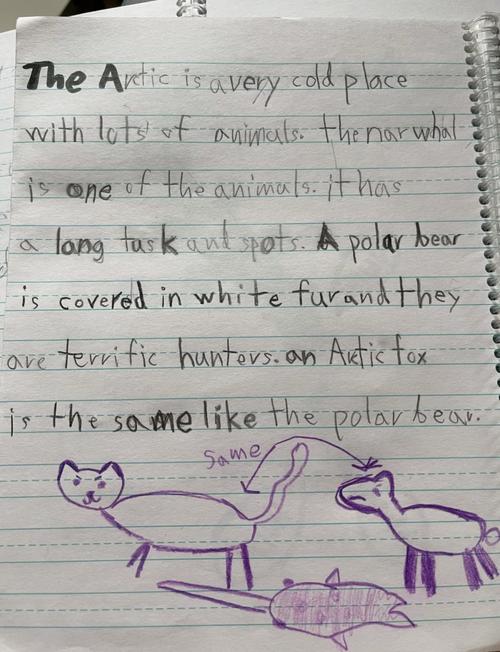 The Arctic is a very cold place
with lots of animals. the narwhal
is one of the animals. it has
a long tusk and spots. A polar bear
is covered in white fur and they
are terrific hunters. an Arctic fox
is the same like the polar bear.
same